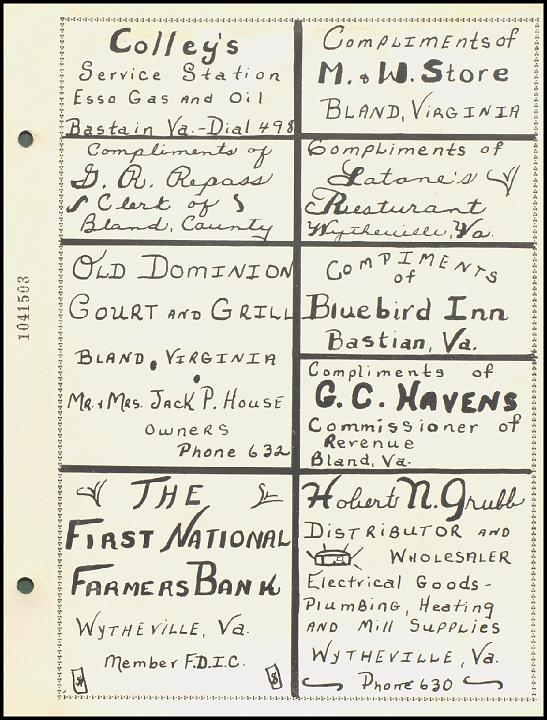 Colley's
Service Station
Esso Gas and Oil
Bastain Va.-Dial 498
Compliments of
G. R. Repass
Clerk of
Bland, County
OLD DOMINION
COURT AND GRILL
BLAND, VIRGINIA
MR. & MRS. JACK P. HOUSE
OWNERS
Phone 632
THE
FIRST NATIONAL
FARMERS BANK
WYTHEVILLE, Va.
Member F.D.I.C.
COMPLIMENTS of
M. & W. STORE
BLAND, VIRGINIA
Compliments of
Latane's
Resturant
Wytheville, Va.
COMPIMENTS
of
Bluebird Inn
Bastian, Va.
Compliments of
G. C. HAVENS
Commissioner of
Revenue
Bland, Va.
Hobert N. Grubb
DISTRIBUTOR AND
WHOLESALER
Electrical Goods-
Plumbing, Heating
AND Mill Supplies
WYTHEVILLE, Va.
Phone 630
1041503